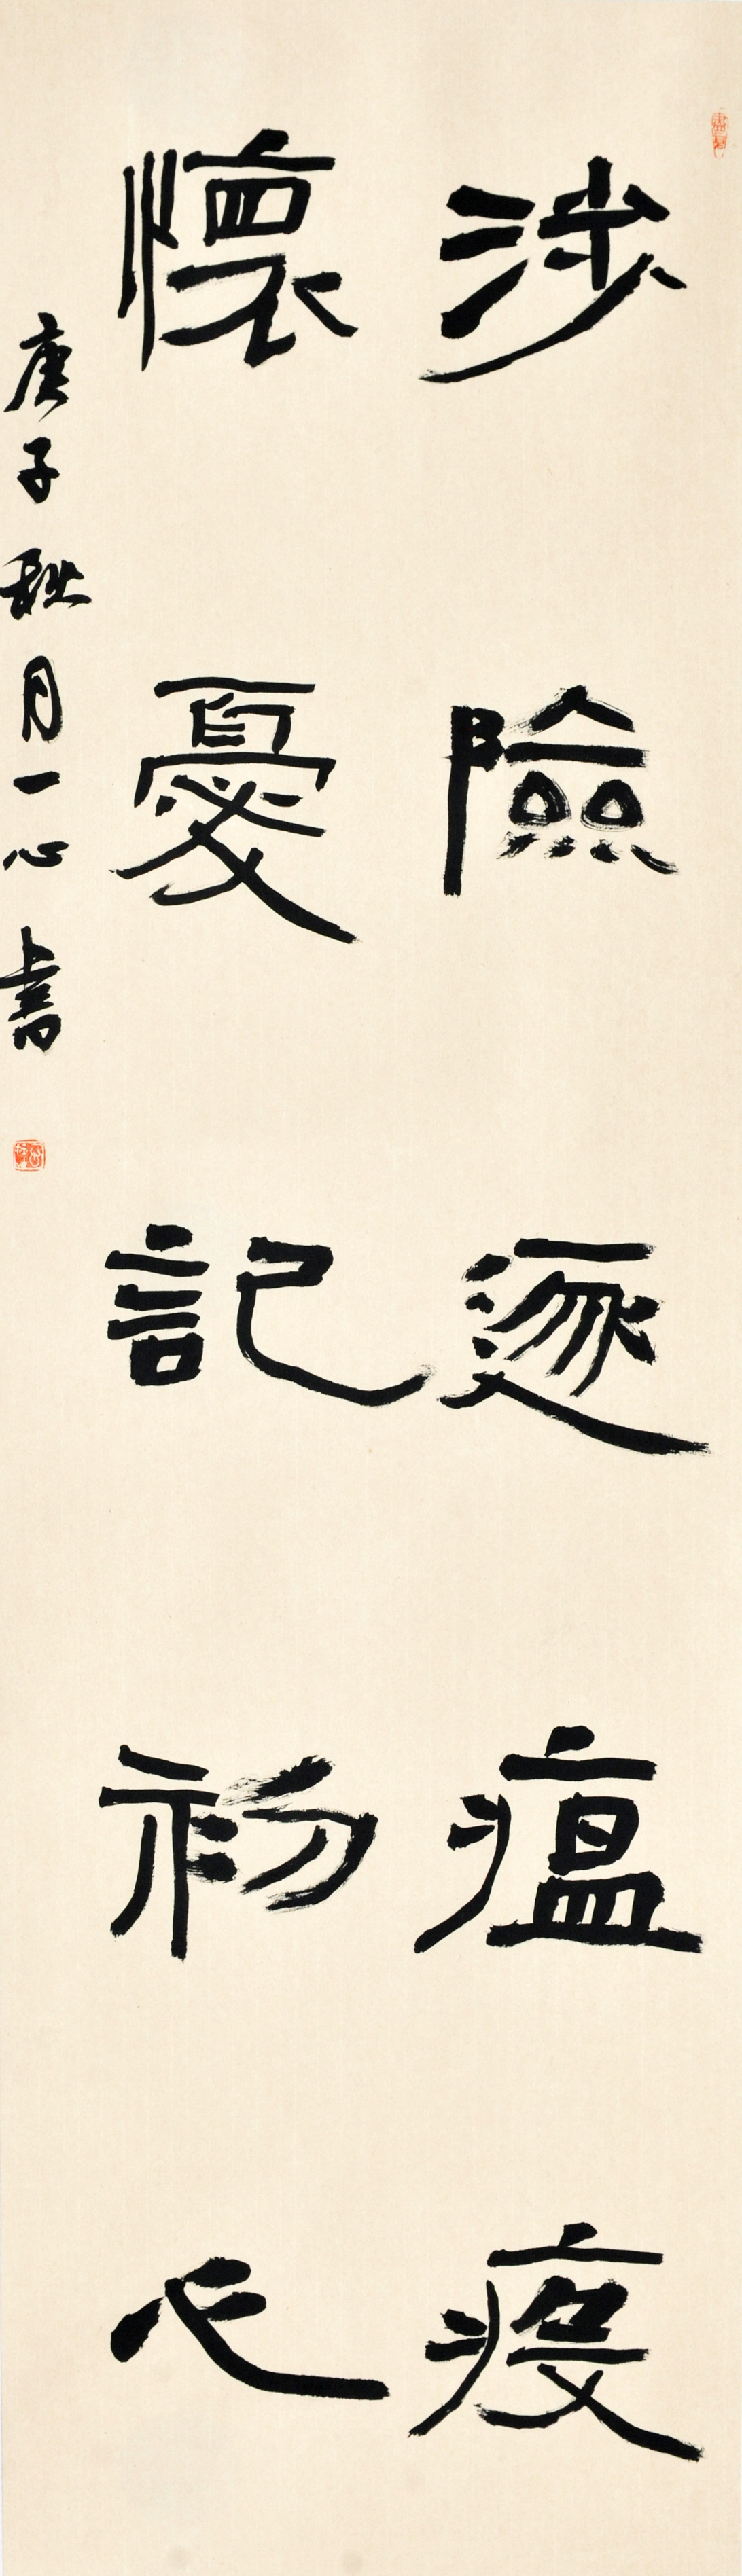 涉險逐瘟疫
懷憂記初心
庚子秋月一心書